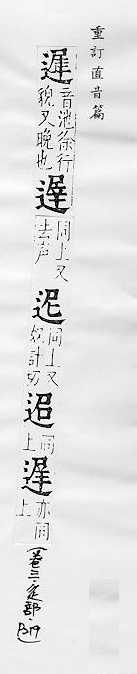 重訂直音篇
遲音池徐行貌又晚也遟同上又去声迡同上又奴計切迢同上遅亦同上(卷三.辵部.P.17)